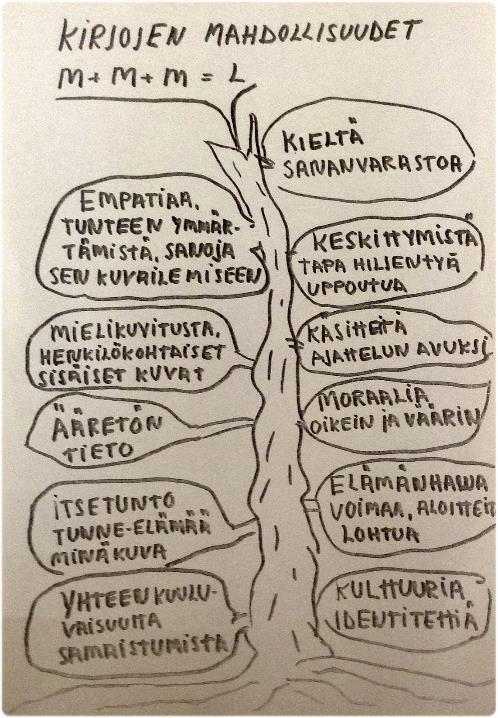 KIRJOJEN MAHDOLLISUUDET
M+M+M = L
KIELTÄ
SANANVARASTOA
EMPATIAA,
TUNTEEN YMMÄR-
TÄMISTÄ, SANOJA
SEN KUVAILEMISEEN
KESKITTYMISTÄ
TAPA HILJENTYÄ
UPPOUTUA
MIELIKUVITUSTA,
HENKILÖKOHTAISET
SISÄISET KUVAT
KÄSITTEITÄ
AJATTELUN AVUKSI
ÄÄRETÖN
TIETO
MORAALIA
OIKEIN JA VÄÄRIN
ITSETUNTO
TUNNE-ELÄMÄÄ
MINÄKUVA
ELÄMÄNHALUA
VOIMAA, ALOITTEIT
LOHTUA
YHTEENKUULU-
VAISUUTTA
SAMAISTUMISTA
KULTTUURIA
IDENTITETTIÄ